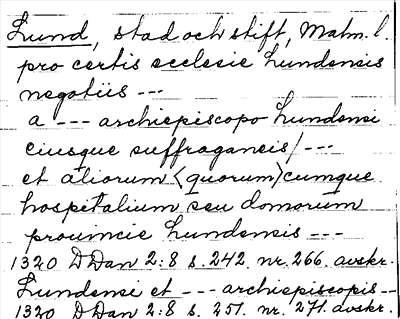 Lund, stad och stift, Malm. l.
pro certis ecclesie Lundensis
negotiis ---
a --- archiepiscopo Lundensi
eiusque suffraganeis/---
et aliorum <quorum>cumque
hospitalium seu domorum
prouincie Lundensis ---
1320 DDan 2:8 s. 242. nr. 266. avskr.
Lundensi et --- archiepiscopis --
1320 DDan 2:8 s. 251. nr. 271. avskr.